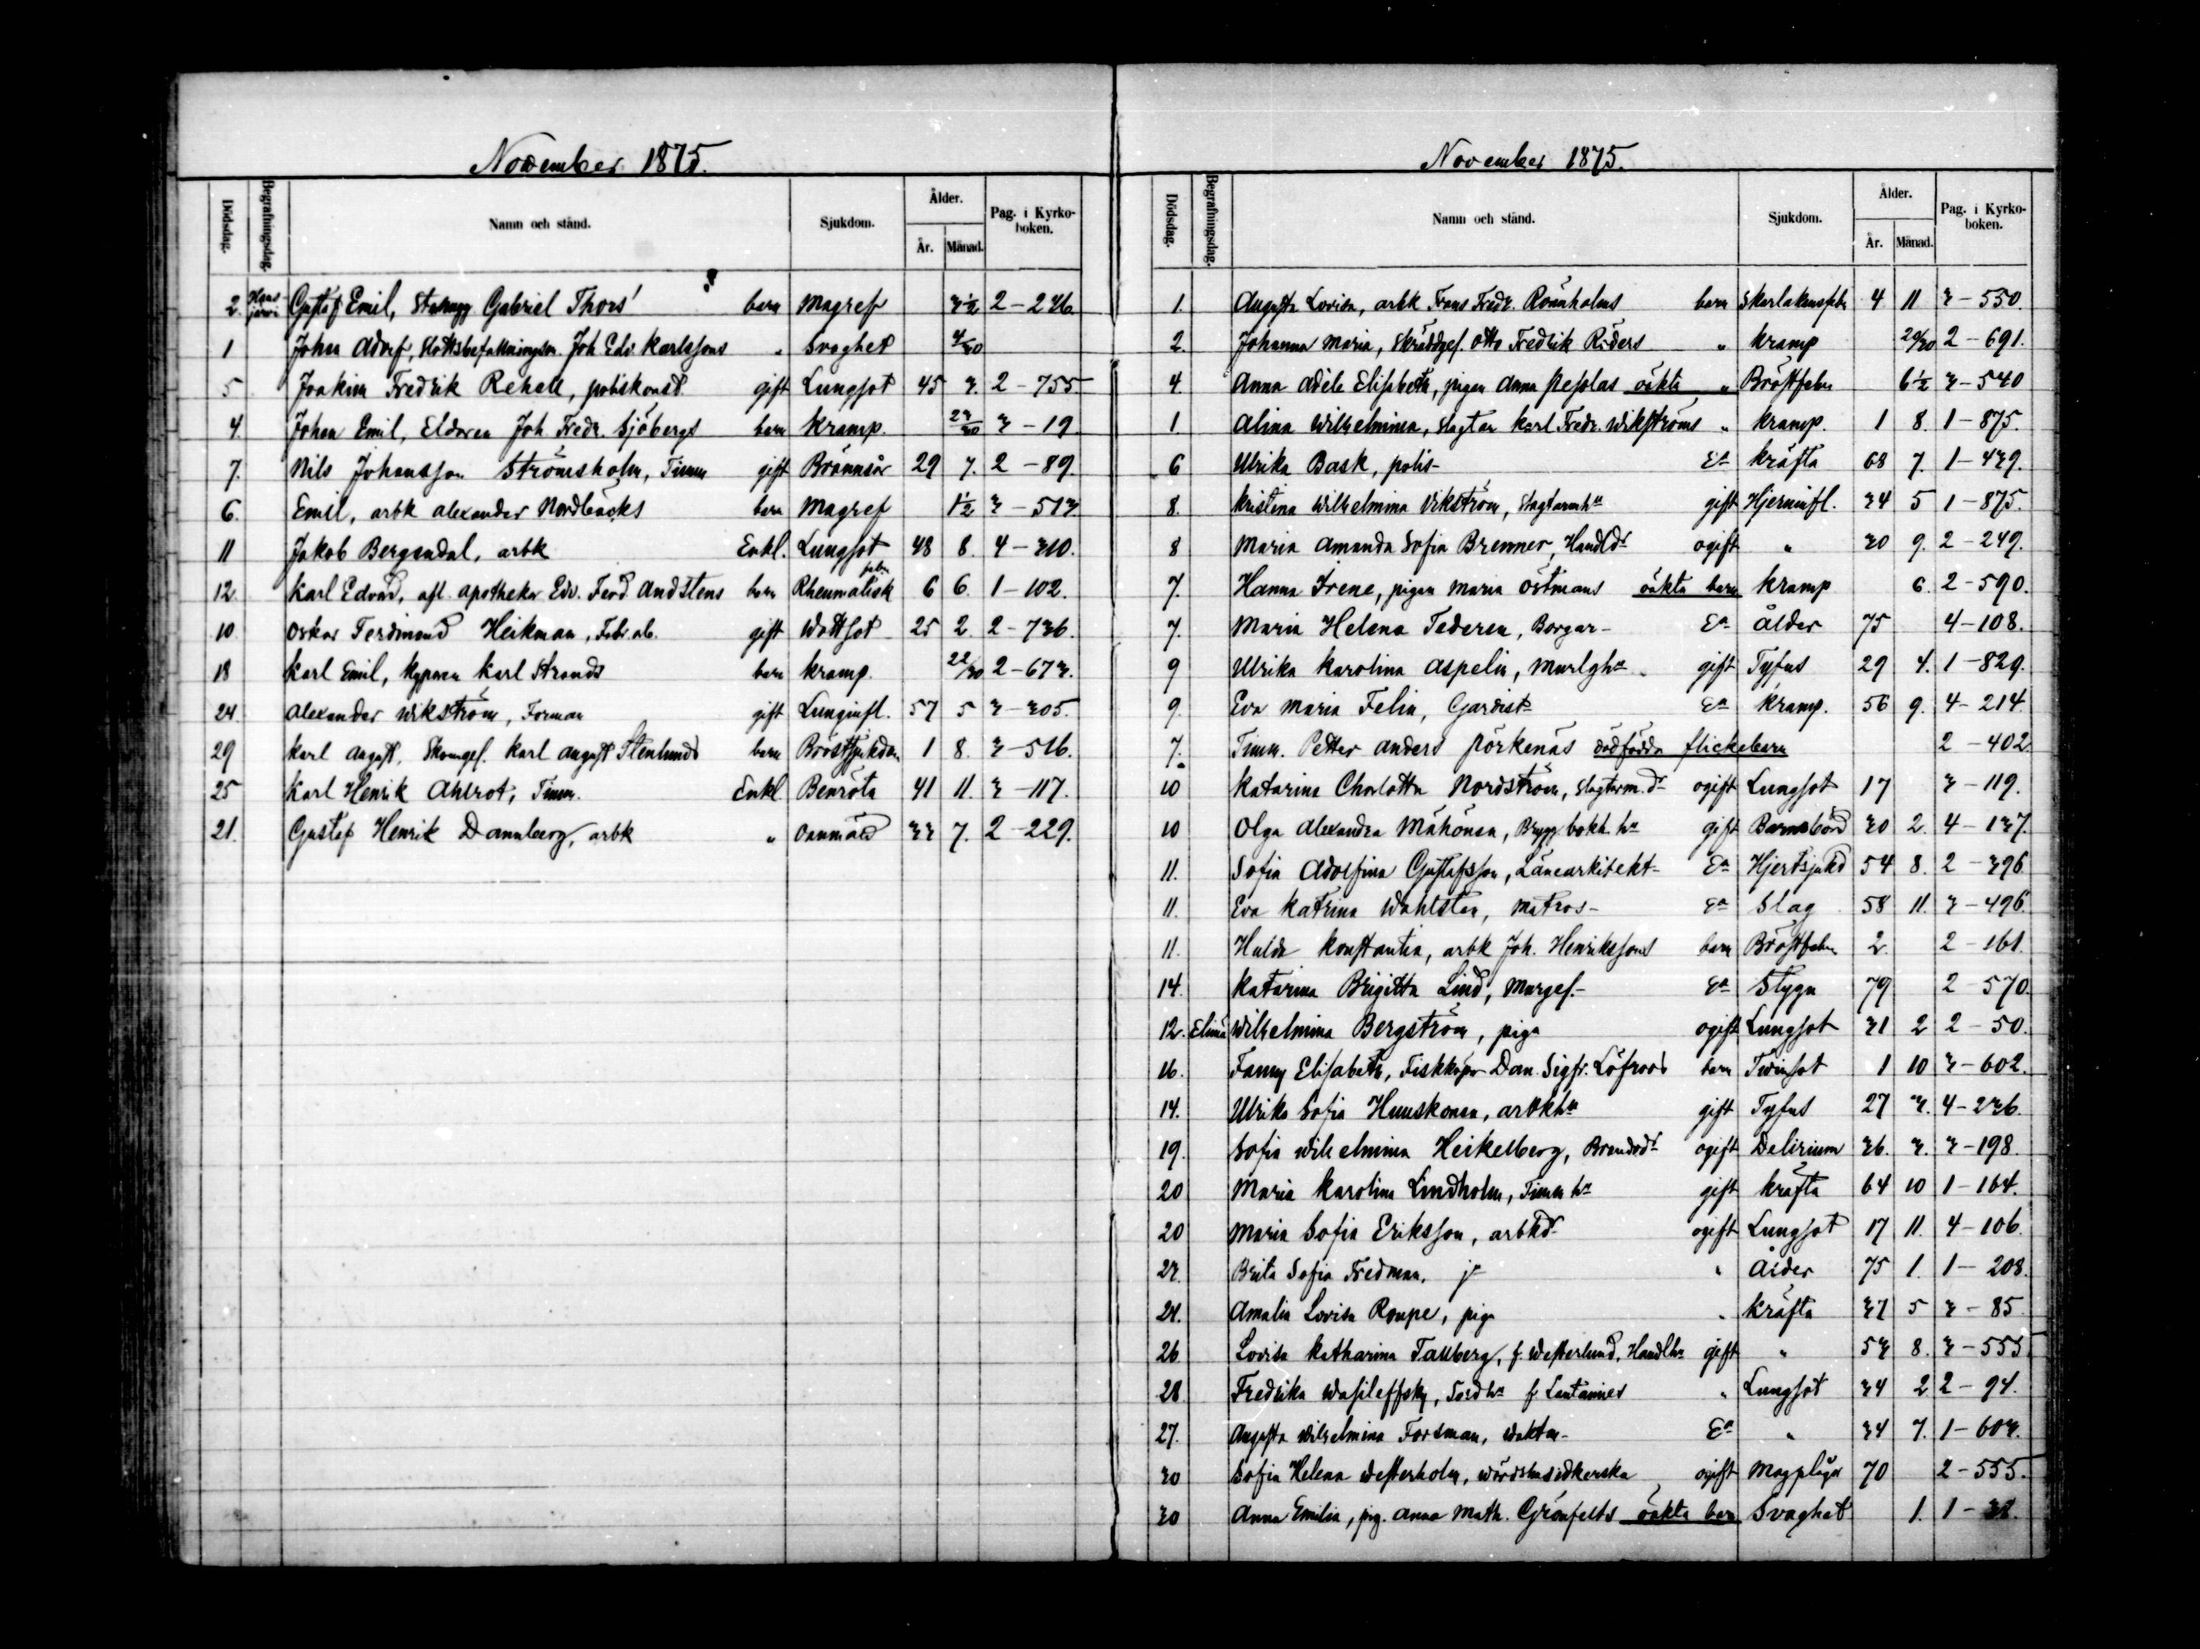 November 1875.
Dödsdag. Begrafningsdag. Namn och stånd. Sjukdom. Ålder. År. Månad. Pag. i Kyrkoboken.
2. Gustaf Emil, Gabriel Thors' barn Magref 3½ 2-236
1 Johan Adolf, Joh Edv Karlssons " Svaghet 4/30
5 Joakim Fredrik Rehell, poliskonst. gift Lungsot 45 3. 2-755
4. Johan Emil, Eldaren Joh. Fredr. Sjöbergs barn Kramp. 23/30 3-19
7. Nils Johansson Strömsholm, Timm gift Brännsår 29 7. 2-89.
6. Emil, arbk Alexander Nordbäcks barn Magref 1½ 3-513
11 Jakob Bergendal, arbk Enkl. Lungsot 48 8. 4-310.
12 Karl Edvard, afl. apothekar Edv. Ferd. Andstens barn Rheumatisk feber 6 6. 1-102.
10. Oskar Ferdinand Heikman, Fabr. ab. gift Wattsot 25 2. 2-736.
18 Karl Emil, kyparen Karl Strands barn kramp. 22/30 2-673.
24. Alexander Wikström, Forman gift Lunginfl. 57 5 3-305.
29 Karl August, Skomgef. Karl August Stenlunds barn Bröstsjukdom 1 8. 3-516.
25 Karl Henrik Ahlrot, Timm. Enkl. Benröta 41 11. 3-117.
21. Gustaf Henrik Dannberg, arbk " Vanmakt 33 7. 2-229.
November 1875.
Dödsdag. Begrafningsdag. Namn och stånd. Sjukdom. Ålder. År. Månad. Pag. i Kyrkoboken.
1. Augusta Lovisa, arbk Frans Fredr. Rönnholms barn Skarlakansfeber 4 11 3-550.
2. Johanna Maria, Skräddgef. Otto Fredrik Röders " kramp 20/30 2-691.
4. Anna Adéle Elisabeth, pigan Anna oäkta " Bröstfeber 6½ 3-540
1. Alina Wilhelmina, slagtar Karl Fredr. Wikströms " kramp. 1 8. 1-875.
6 Ulrika Bask, polis- Ea kräfta 68 7. 1-439.
8. Kristina Wilhelmina Vikström, Slagtarenhu gift Hjerninfl. 34 5 1-875.
8 Maria Amanda Sofia Brenner, Handldr ogift " 30 9. 2-249.
7. Hanna Irene, pigan Maria Östmans oäkta barn kramp 6. 2-590.
7. Maria Helena Federen, Borgar- Ea Ålder 75 4-108.
9 Ulrika Karolina Aspelin, Murlghu gift Tyfus 29 4. 1-829.
9. Eva Maria Felin, Gardist- Ea kramp. 56 9. 4-214.
7. Timm. Petter Anders Pörkenäs dödfödda flickebarn 2-402
10 Katarina Charlotta Nordström, slagtarm.dr ogift Lungsot 17 3-119.
10 Olga Alexandra Mähönen, Brygg bokh. hu gift Barnsbörd 30 2. 4-137.
11. Sofia Adolfina Gustafsson, Länearkitekt- Ea Hjertsjukd 54 8. 2-396
11. Eva Katrina Wahlsten, Matros- Ea Slag 58 11. 3-496.
11. Hulda Konstantia, arbk Joh. Henrikssons barn Bröstfeber 2. 2-161.
14. Katarina Brigitta Lind, Murgef.- Ea Stygn 79 2-570.
12. Elimä Wilhelmina Bergström, piga ogift Lungsot 31 2 2-50.
16. Fanny Elisabeth, Fiskköpar Dan. Sigfr. Löfroos barn Tvinsot 1 10 3-602.
14. Ulrika Sofia Hunskonen, arbkhu gift Tyfus 27 3. 4-236.
19. Sofia Wilhelmina Heikelberg, ogift Delirium 36. 3. 3-198.
20 Maria Karolina Lindholm, Timm hu gift kräfta 64 10 1-164.
20 Maria Sofia Eriksson, arbkdr ogift Lungsot 17 11. 4-106.
23. Brita Sofia Fredman, " Ålder 75 1. 1-208.
24. Amalia Lovisa Roupe, pig " kräfta 37 5 3-85
26. Lovisa Katharina Tallberg, f. Westerlund, Handlhu gift " 53 8. 3-555
28 Fredrika Wasileffsky, f. " Lungsot 34 2 2-94.
27. Augusta Wilhelmina Forsman, Waktm- Ea " 34 7. 1-603.
30 Sofia Helena Westerholm, ogift Magplågor 70 2-555.
30 Anna Emilia, pig. Anna Math. Grönfelts oäkta barn Svaghet 1. 1-